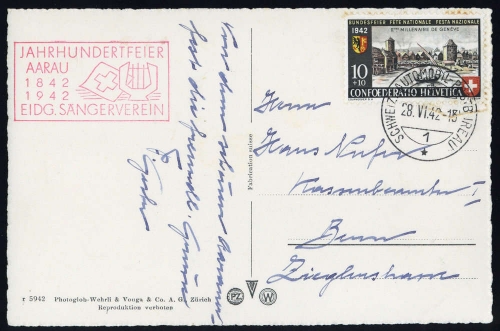 JAHRHUNDERTFEIER
AARAU
1842
1942
EIDG. SÄNGERVEREIN
BUNDESFEIER FÊTE NATIONALE FESTA NAZIONALE
1942
2ME MILLENAIRE DE GENÈVE
10
+10
CONFOEDERATIO HELVETICA
SCHWEIZ. AUTOMOBIL-POSTBUREAU
28.VI.42-15
1
Von dem schönen Aarau
die freundl. Grüsse
Fabrication suisse
Herrn
Hans Nufer
Kassenbeamter I
Bern
Zieglerstrasse
r 5942 Photoglob-Wehrli & Vouga & Co. A. G. Zürich
Reproduktion verboten
PZ
W